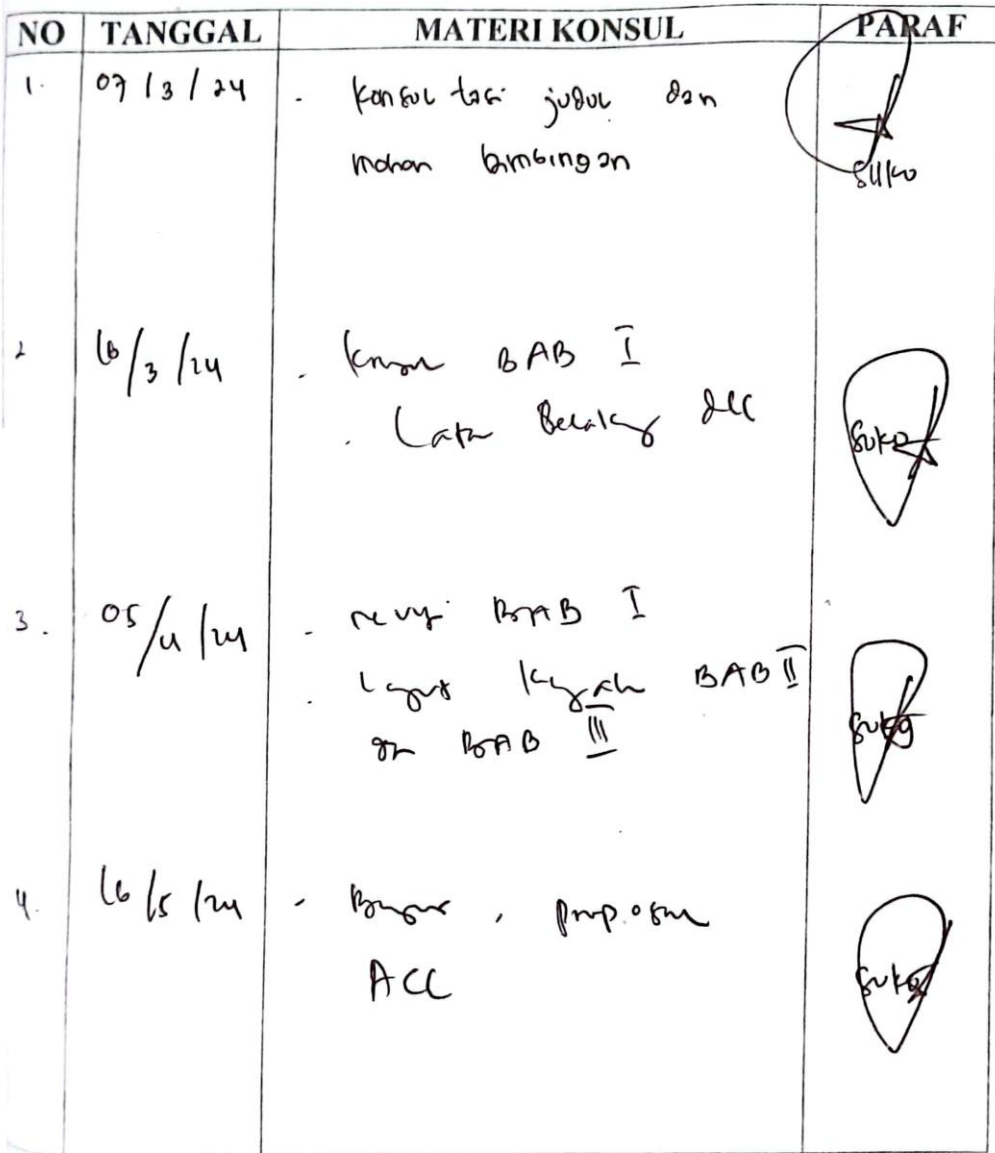 NO TANGGAL MATERI KONSUL PARAF
1. 07/3/24 - Konsultasi judul dan
mohon bimbingan
Suko
2 16/3/24 - Konsul BAB I
- Latar Belakang dll
Suko
3. 05/4/24 - revisi BAB I
- BAB II
dan BAB III
Suko
4. 16/5/24 - proposal
ACC
Suko